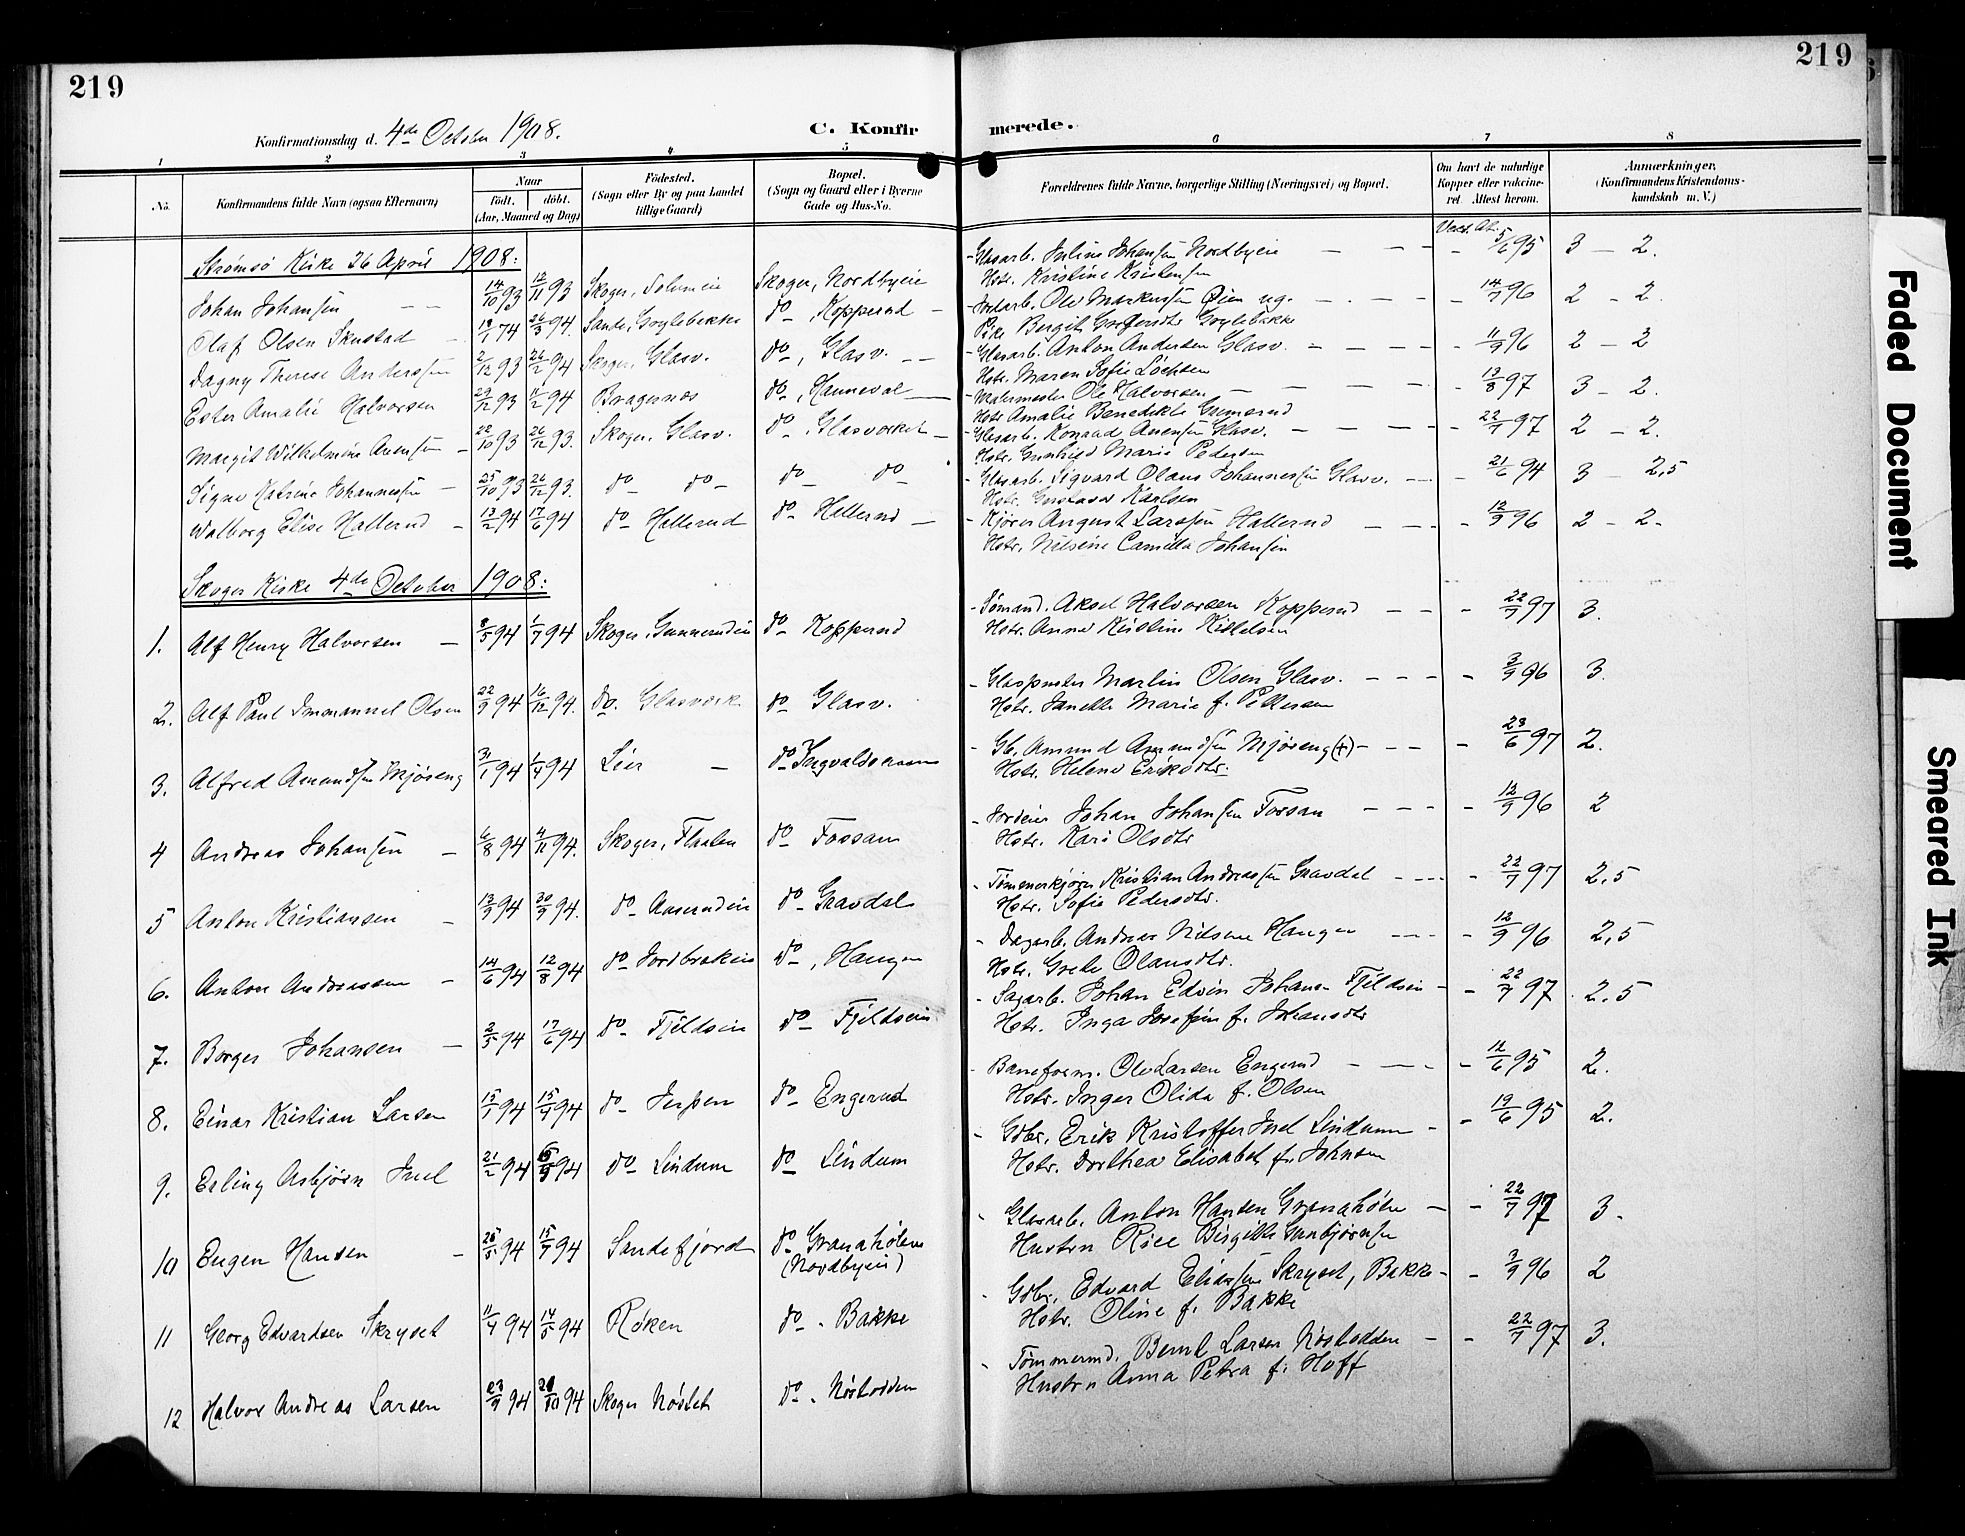 219
219
Konfirmationsdag d. 4de October 1908.
C. Konfirmerede.
1 2 3 4 5 6 7 8
No.
Konfirmandens fulde Navn (ogsaa Efternavn)
Naar
født. døbt.
(Aar, Maaned og Dag)
Fødested.
(Sogn eller By og paa Landet
tillige Gaard)
Bopæl.
(Sogn og Gaard eller i Byerne
Gade og Hus-No.
Forældrenes fulde Navne, borgerlige Stilling (Næringsvei) og Bopæl.
Om havt de naturlige
Kopper eller vakcine-
ret. Attest herom.
Anmærkninger,
(Konfirmandens Kristendoms-
kundskab m. V.)
Strømsø Kirke 26 April 1908:
Johan Johansen 14/10 93 12/11 93 Skoger, Skoger, Nordbyeie Glasarb. Julius Johansen Nordbyeie 5/6 95 3 - 2.
Hstr. Kristine Kristensen
Olaf Olsen Skustad Sande, Goglebakke do, Kopperud Ole Markussen Øien ug. 14/7 96 2 - 2.
Pike Bergit Goglebakke
Dagny Therese Anderssen 2/12 93 26/2 94 Skoger, Glasv. do, Glasv. Glasarb. Anton Andersen Glasv. 11/9 96 2 - 2
Hstr. Maren Sofie Løchsen
Ester Amalie Halvorsen 29/12 93 11/2 94 Bragernæs do, Hanneval Malermester Ole Halvorsen 13/8 97 3 - 2.
Hstr Amalie Benedikte Gunnerud
Margit Wilhelmine Anensen 22/10 93 26/12 93. Skoger, Glasv. do, Glasværket Glasarb. Konrad Anensen Glasv. 22/7 97 2 - 2.
Hstr. Gunhild Marie Pedersen
Signe Katrine Johannessen 25/10 93 26/12 93. do do do do Glasarb. Sigvard Olaus Johannessen Glasv. 21/6 94 3 2,5
Hstr. Gustava Karlsen
Walborg Elise Hallerud 13/2 94 17/6 94 do Hallerud do Hallerud Kjører August Larssen Hallerud 12/9 96 2 - 2.
Hstr. Nilsine Camilla Johansen
Skoger Kirke 4de October 1908:
1. Alf Henry Halvorsen 8/5 94 1/7 94 Skoger, Gunnerudeie do Kopperud Sømand. Aksel Halvorsen Kopperud 22/7 97 3.
Hstr. Anne Kristine Kittelsen
2. Alf Paul Immanuel Olsen 22/9 94 16/12 94. do. Glasværk do Glasv. Glaspuster Martin Olsen Glasv. 3/9 96 3.
Hstr. Janette Marie f. Pettersen
3. Alfred Amundsen Mjøseng 31/1 94 1/4 94 Lier do Ingvaldsaasen Gb. Amund Amundsen Mjøseng (+) 23/6 97 2.
Hstr. Helene Eriksdtr.
4 Andreas Johansen 6/8 94 4/11 94. Skoger, Flaaten do Fossan Jordeier Johan Johansen Fossan 12/9 96 2
Hstr. Kari Olsdtr
5 Anton Kristiansen 13/9 94 30/9 94. do Aaserudeie do Gravdal Tømmerkjører Kristian Andreassen Gravdal 22/7 97 2,5
Hstr. Sofie Pedersdtr.
6. Anton Andreassen 14/6 94 12/8 94 do Jordbrækeie do, Haugen Dagarb. Andreas Nilsen Haugen 12/9 96 2,5
Hstr. Grete Olausdtr.
7. Borger Johansen 3/5 94 17/6 94 do Fjeldseie do Fjeldseie Sagarb. Johan Edvin Johanse Fjeldseie 22/7 97 2,5
Hstr. Inga Josefine f. Johansdtr
8. Einar Kristian Larsen 15/1 94 15/4 94 do Jerpen do Engerud Baneform. Ole Larsen Engerud 12/6 95 2.
Hstr. Inger Olida f. Olsen
9. Erling Asbjørn Juel 21/2 94 94 do Lindum do Lindum Gdbr. Erik Kristoffer Juel Lindum 19/6 95 2.
Hstr. Dorthea Elisabet f. Johnsen
10 Eugen Hansen 25/5 94 15/7 94 Sandefjord do Granahølen Glasarb. Anton Hansen Granahølen 22/7 97 3.
(Nordbyeie) Hustru Birgitte
11 Georg Edvardsen Skryset 11/4 94 14/5 94 Røken do. Bakke Gdbr. Edvard Eliassen Skryset, Bakke 3/9 96 2
Hstr. Oline f. Bakke
12 Halvor Andreas Larsen 23/9 94 94 Skoger Nøstet do. Nøstodden Tømmermd. Bernt Larsen Nøstodden 22/7 97 3.
Hustru Anna Petra f. Hoff
Faded Document
Smeared Ink